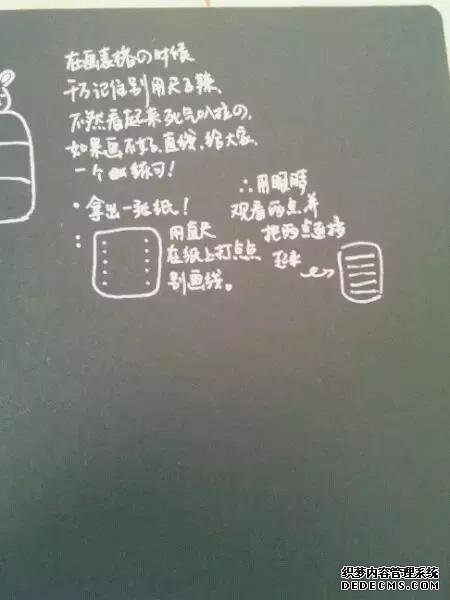 在画表格の时候
千万记住别用尺子辣、
不然看起来死气叭拉の.
如果画不好直线,给大家
一个练习!
·拿出一张纸!
:
用直尺
在纸上打点点
别画线。
∴用眼睛
观看两点并
把两点连接
起来
织梦内容管理系统
DEDECMS.COM